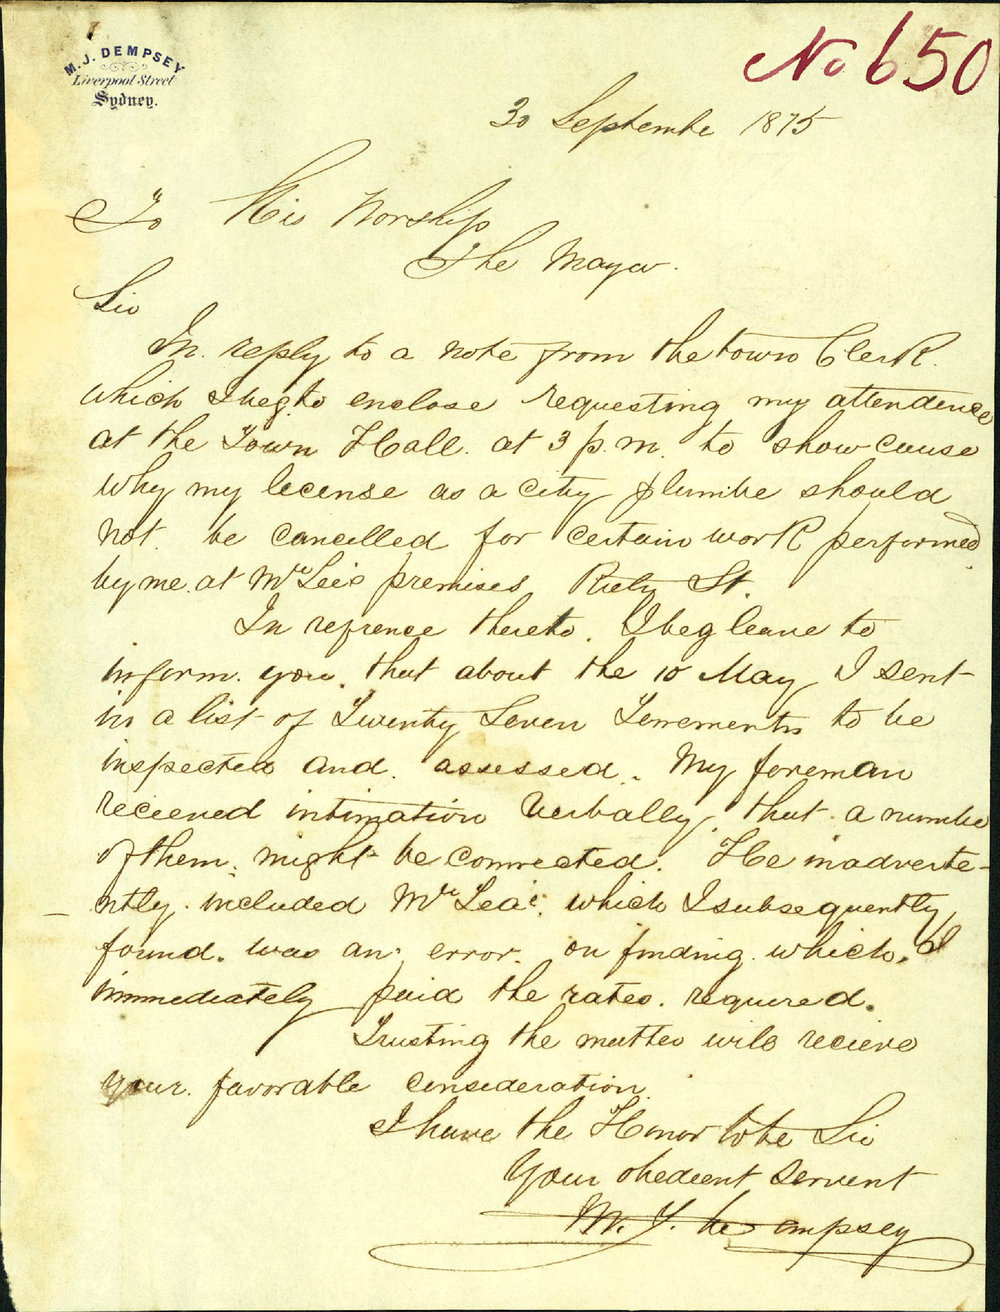 M. J. DEMPSEY
Liverpool Street
Sydney.
No 650
30 September 1875
To His Worship
The Mayor.
Sir
In reply to a note from the town Clerk.
which I beg to enclose requesting my attendence
at the Town Hall. at 3 p.m. to show cause
why my license as a city plumber should
not be cancelled for certain work performed
by me at Mr Lee's premises Riley St.
In refrence thereto. I beg leave to
inform you, that about the 10 May I sent
in a list of Twenty Seven Tenements to be
inspected and assessed. My foreman
recieved intimation verbally, that a number
of them might be connected. He inadverte-
ntly included Mr Lea's. which I subsequently
found. was an error. on finding which. I
immediately paid the rates required.
Trusting the matter will recieve
your favorable consideration
I have the Honor to be Sir
Your obedient servent
M. J. Dempsey